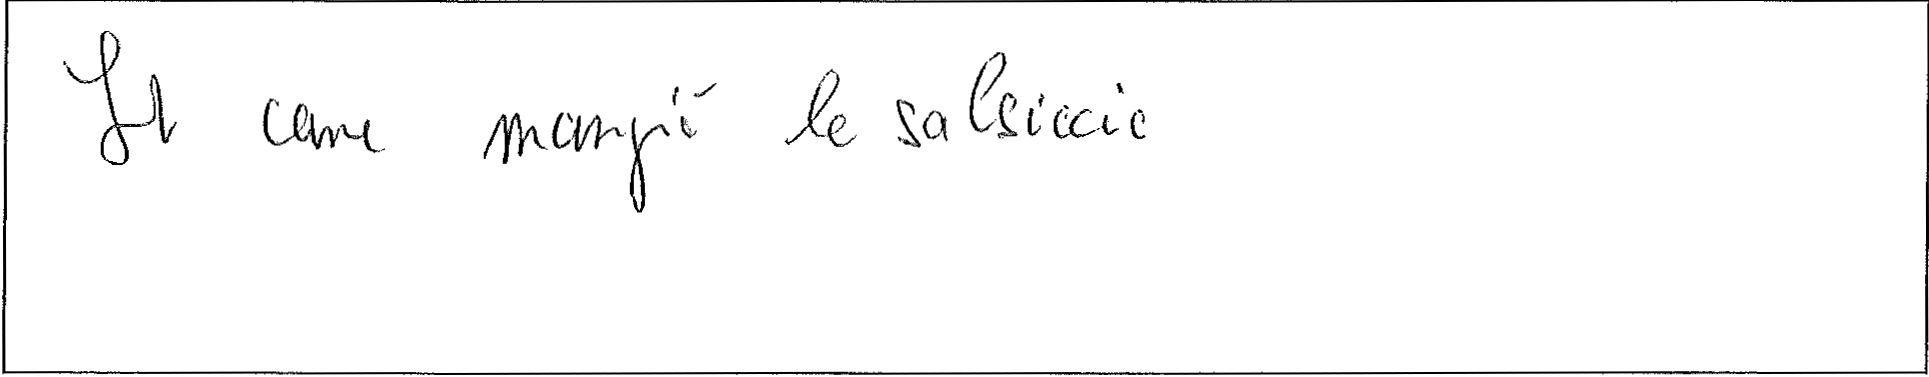 Il cane mangiò le salsiccie